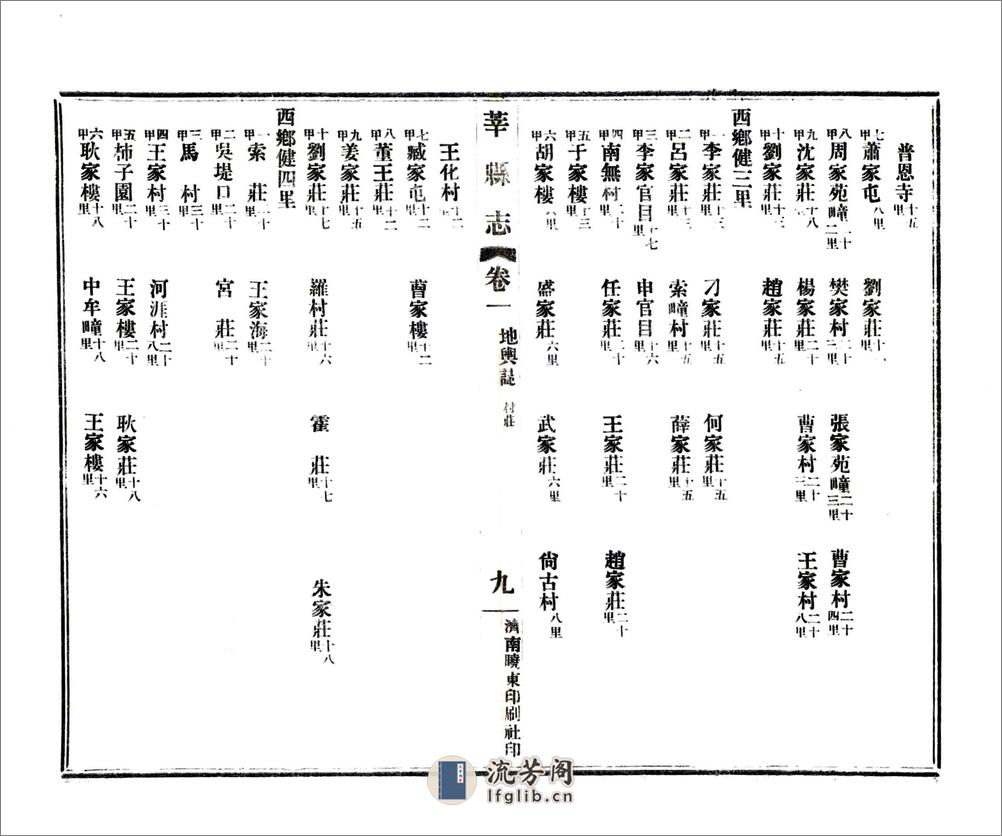 普恩寺十五里
七甲蕭家屯八里 劉家莊十二里
八甲周家苑疃二十二里 樊家村二十三里 張家苑疃二十三里 曹家村二十四里
九甲沈家莊十八里 楊家莊二十里 曹家村二十三里 王家村二十八里
十甲劉家莊十三里 趙家莊十五里
西鄉健三里
一甲李家莊十三里 刁家莊十五里 何家莊十五里
二甲呂家莊十三里 索疃村十五里 薛家莊十五里
三甲李家官目十七里 申官目十六里
四甲南無村二十里 任家莊二十里 王家莊二十里 趙家莊二十里
五甲于家樓十三里
六甲胡家樓八里 盛家莊六里 武家莊六里 尙古村八里
莘縣志 卷一 地輿誌 村莊 九 濟南曉東印刷社印
王化村十二里
七甲臧家屯十二里 曹家樓十二里
八甲董王莊十二里
九甲姜家莊十五里
十甲劉家莊十七里 羅村莊十六里 霍莊十七里 朱家莊十八里
西鄉健四里
一甲索莊二十里 王家海二十里
二甲吳堤口二十里 宮莊二十里
三甲馬村三十里
四甲王家村三十里 河涯村二十八里
五甲柿子園二十里 王家樓二十里 耿家莊十八里
六甲耿家樓十八里 中牟疃十八里 王家樓十六里
流芳阁
lfglib.cn